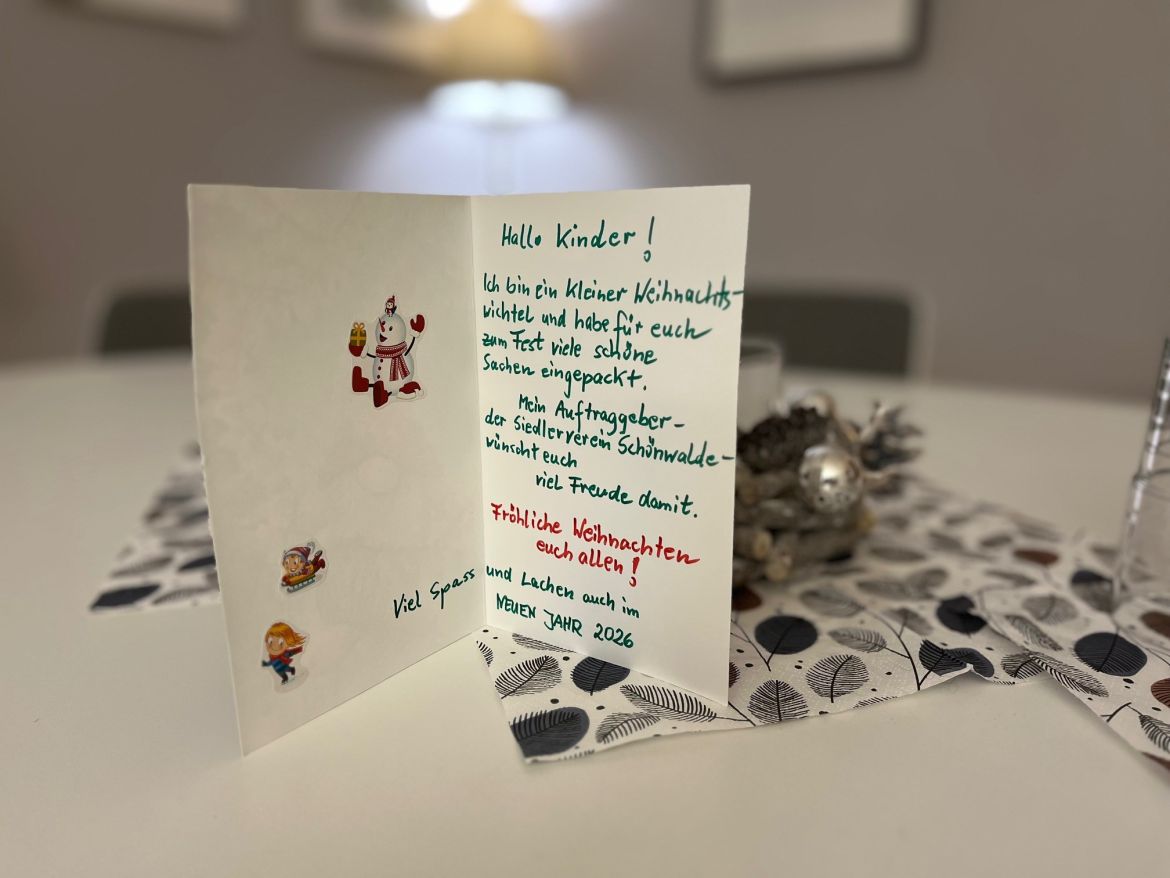 Hallo Kinder!
Ich bin ein kleiner Weihnachts-
wichtel und habe für euch
zum Fest viele schöne
Sachen eingepackt.
Mein Auftraggeber-
der Siedlerverein Schönwalde-
wünscht euch
viel Freude damit.
Fröhliche Weihnachten
euch allen!
Viel Spass und Lachen auch im
NEUEN JAHR 2026